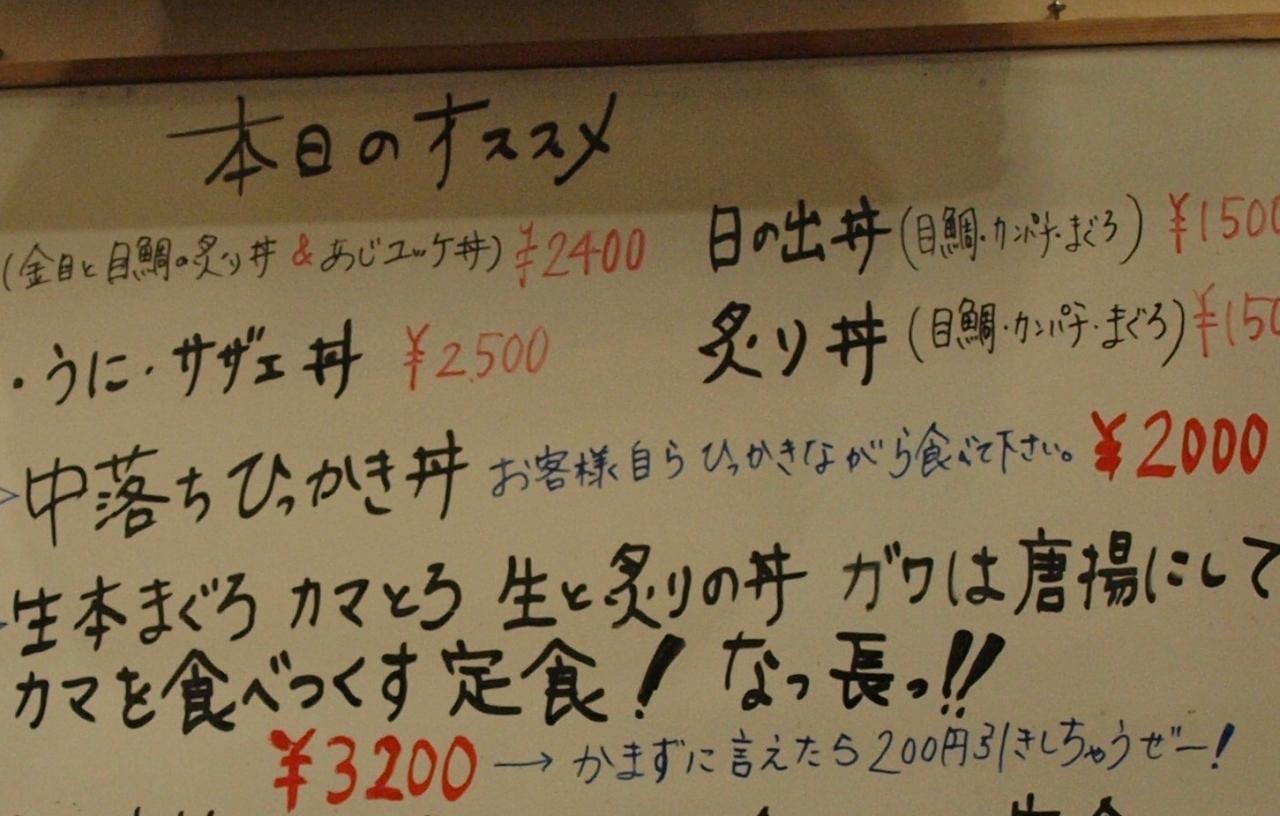 本日のオススメ
(金目と目鯛の炙り丼 & あじユッケ丼) ¥2400
日の出丼 (目鯛・カンパチ・まぐろ) ¥1500
・うに・サザエ丼 ¥2,500
炙り丼 (目鯛・カンパチ・まぐろ) ¥150
中落ちひっかき丼 お客様自らひっかきながら食べて下さい。 ¥2000
生本まぐろ カマとろ 生と炙りの丼 ガワは唐揚にして
カマを食べつくす定食! なっ長っ!!
¥3200 → かまずに言えたら200円引きしちゃうぜー!